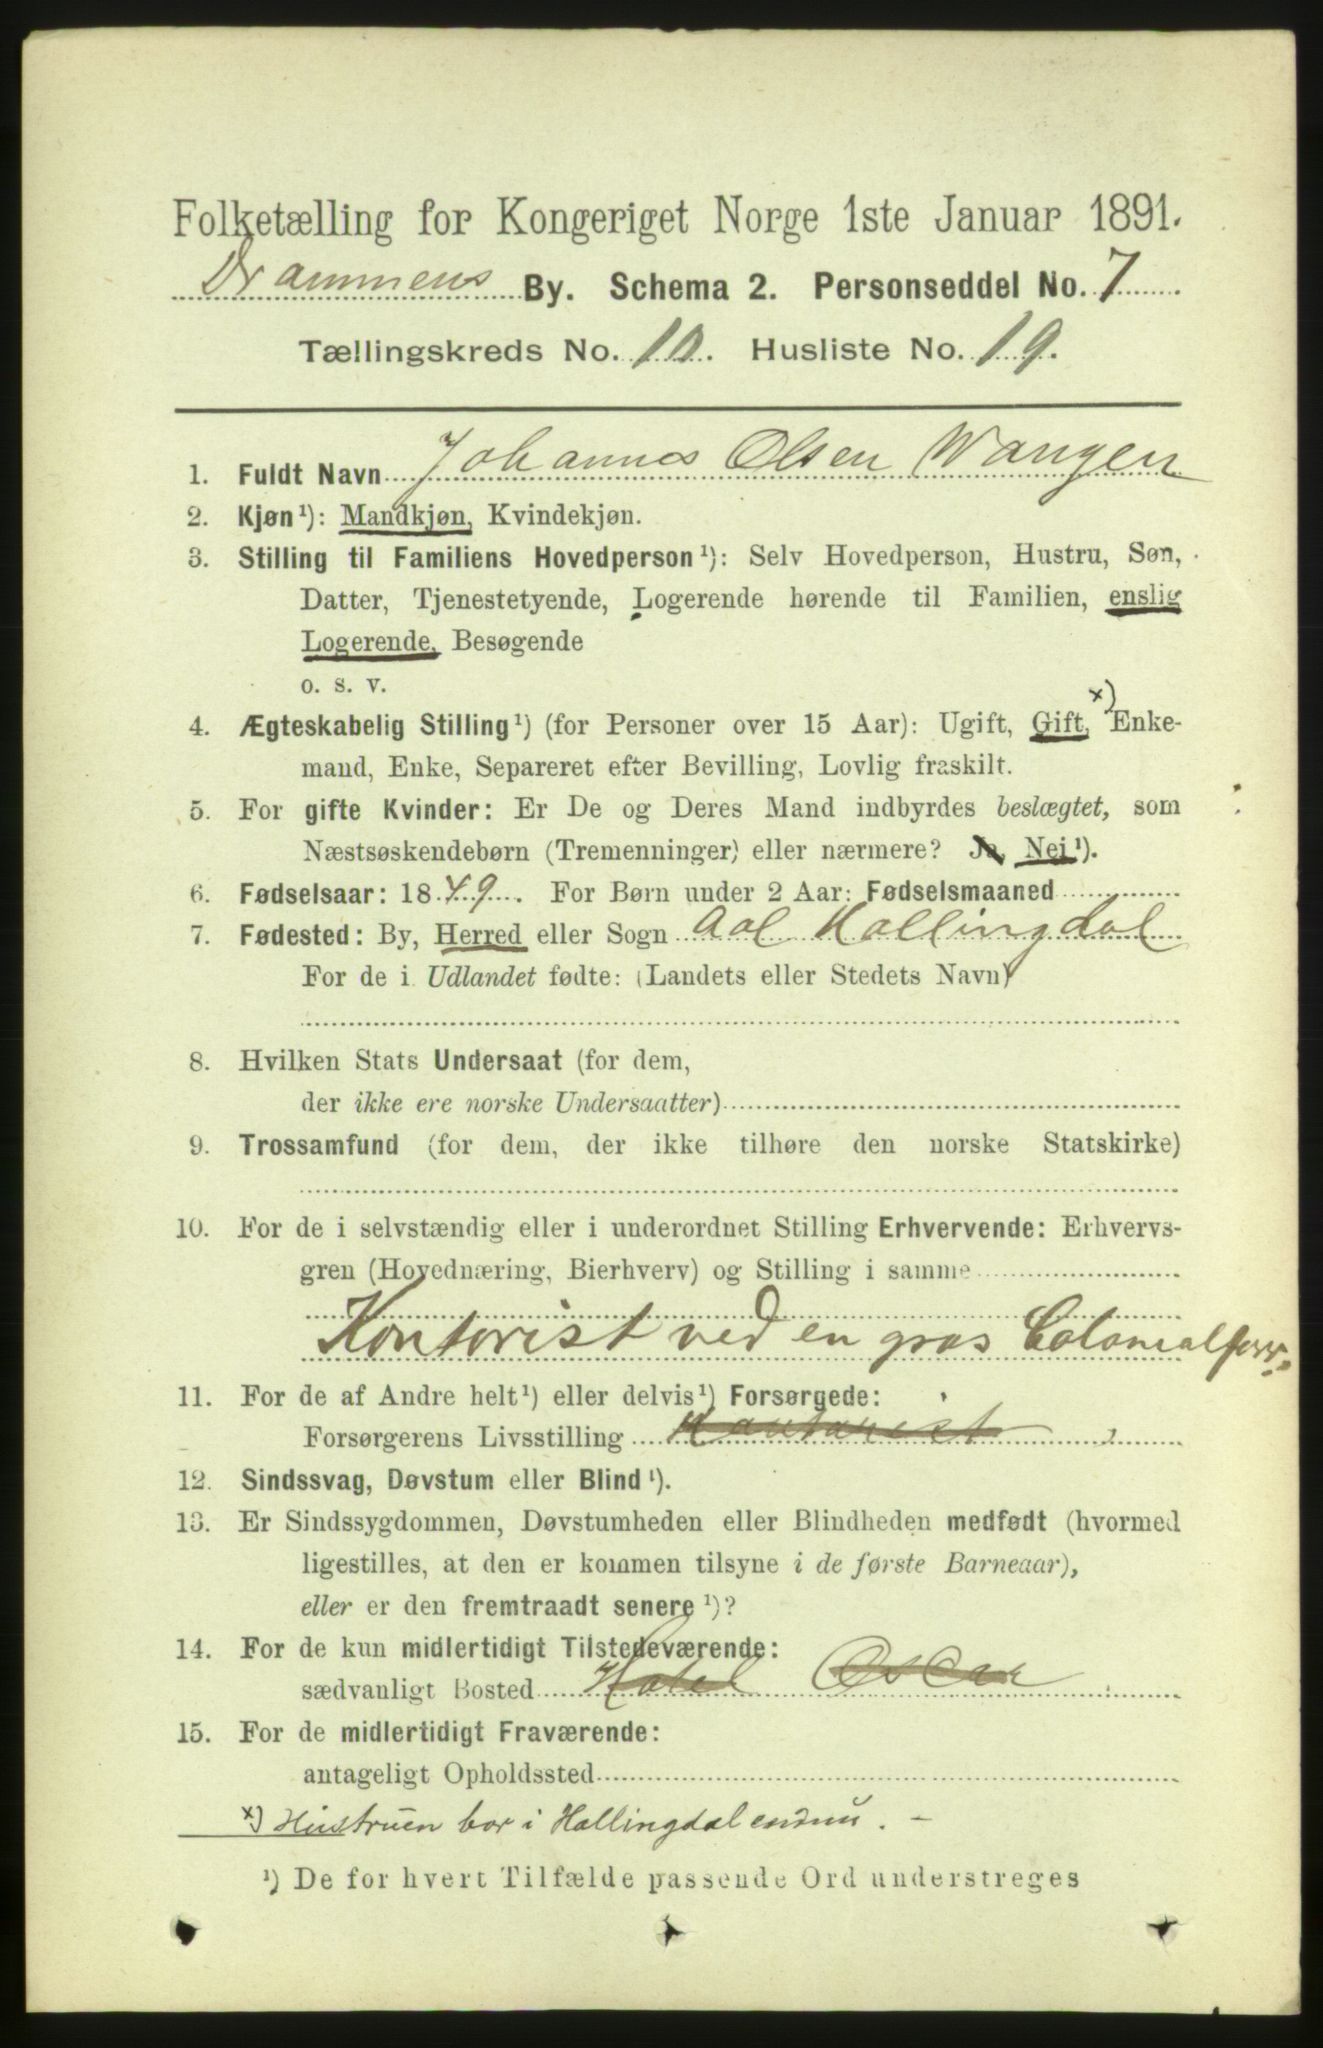 Folketælling for Kongeriget Norge 1ste Januar 1891.
Drammens By. Schema 2. Personseddel No. 7
Tællingskreds No. 10. Husliste No. 19.
1. Fuldt Navn Johannes Olsen Wangen
2. Kjøn¹): Mandkjøn, Kvindekjøn.
3. Stilling til Familiens Hovedperson¹): Selv Hovedperson, Hustru, Søn,
Datter, Tjenestetyende, Logerende hørende til Familien, enslig
Logerende, Besøgende
o. s. v.
x)
4. Ægteskabelig Stilling¹) (for Personer over 15 Aar): Ugift, Gift, Enke-
mand, Enke, Separeret efter Bevilling, Lovlig fraskilt.
5. For gifte Kvinder: Er De og Deres Mand indbyrdes beslægtet, som
Næstsøskendebørn (Tremenninger) eller nærmere? Ja, Nei¹).
6. Fødselsaar: 1849. For Børn under 2 Aar: Fødselsmaaned
7. Fødested: By, Herred eller Sogn Aal Hallingdal
For de i Udlandet fødte: (Landets eller Stedets Navn)
8. Hvilken Stats Undersaat (for dem,
der ikke ere norske Undersaatter)
9. Trossamfund (for dem, der ikke tilhøre den norske Statskirke)
10. For de i selvstændig eller i underordnet Stilling Erhvervende: Erhvervs-
gren (Hovednæring, Bierhverv) og Stilling i samme
Kontorist ved en gros Colonialforr.
11. For de af Andre helt¹) eller delvis¹) Forsørgede:
Forsørgerens Livsstilling Kontorist
12. Sindssvag, Døvstum eller Blind¹).
13. Er Sindssygdommen, Døvstumheden eller Blindheden medfødt (hvormed
ligestilles, at den er kommen tilsyne i de første Barneaar),
eller er den fremtraadt senere¹)?
14. For de kun midlertidigt Tilstedeværende:
sædvanligt Bosted Hotel Oscar
15. For de midlertidigt Fraværende:
antageligt Opholdssted
x) Hustruen bor i Hallingdal endnu. -
¹) De for hvert Tilfælde passende Ord understreges